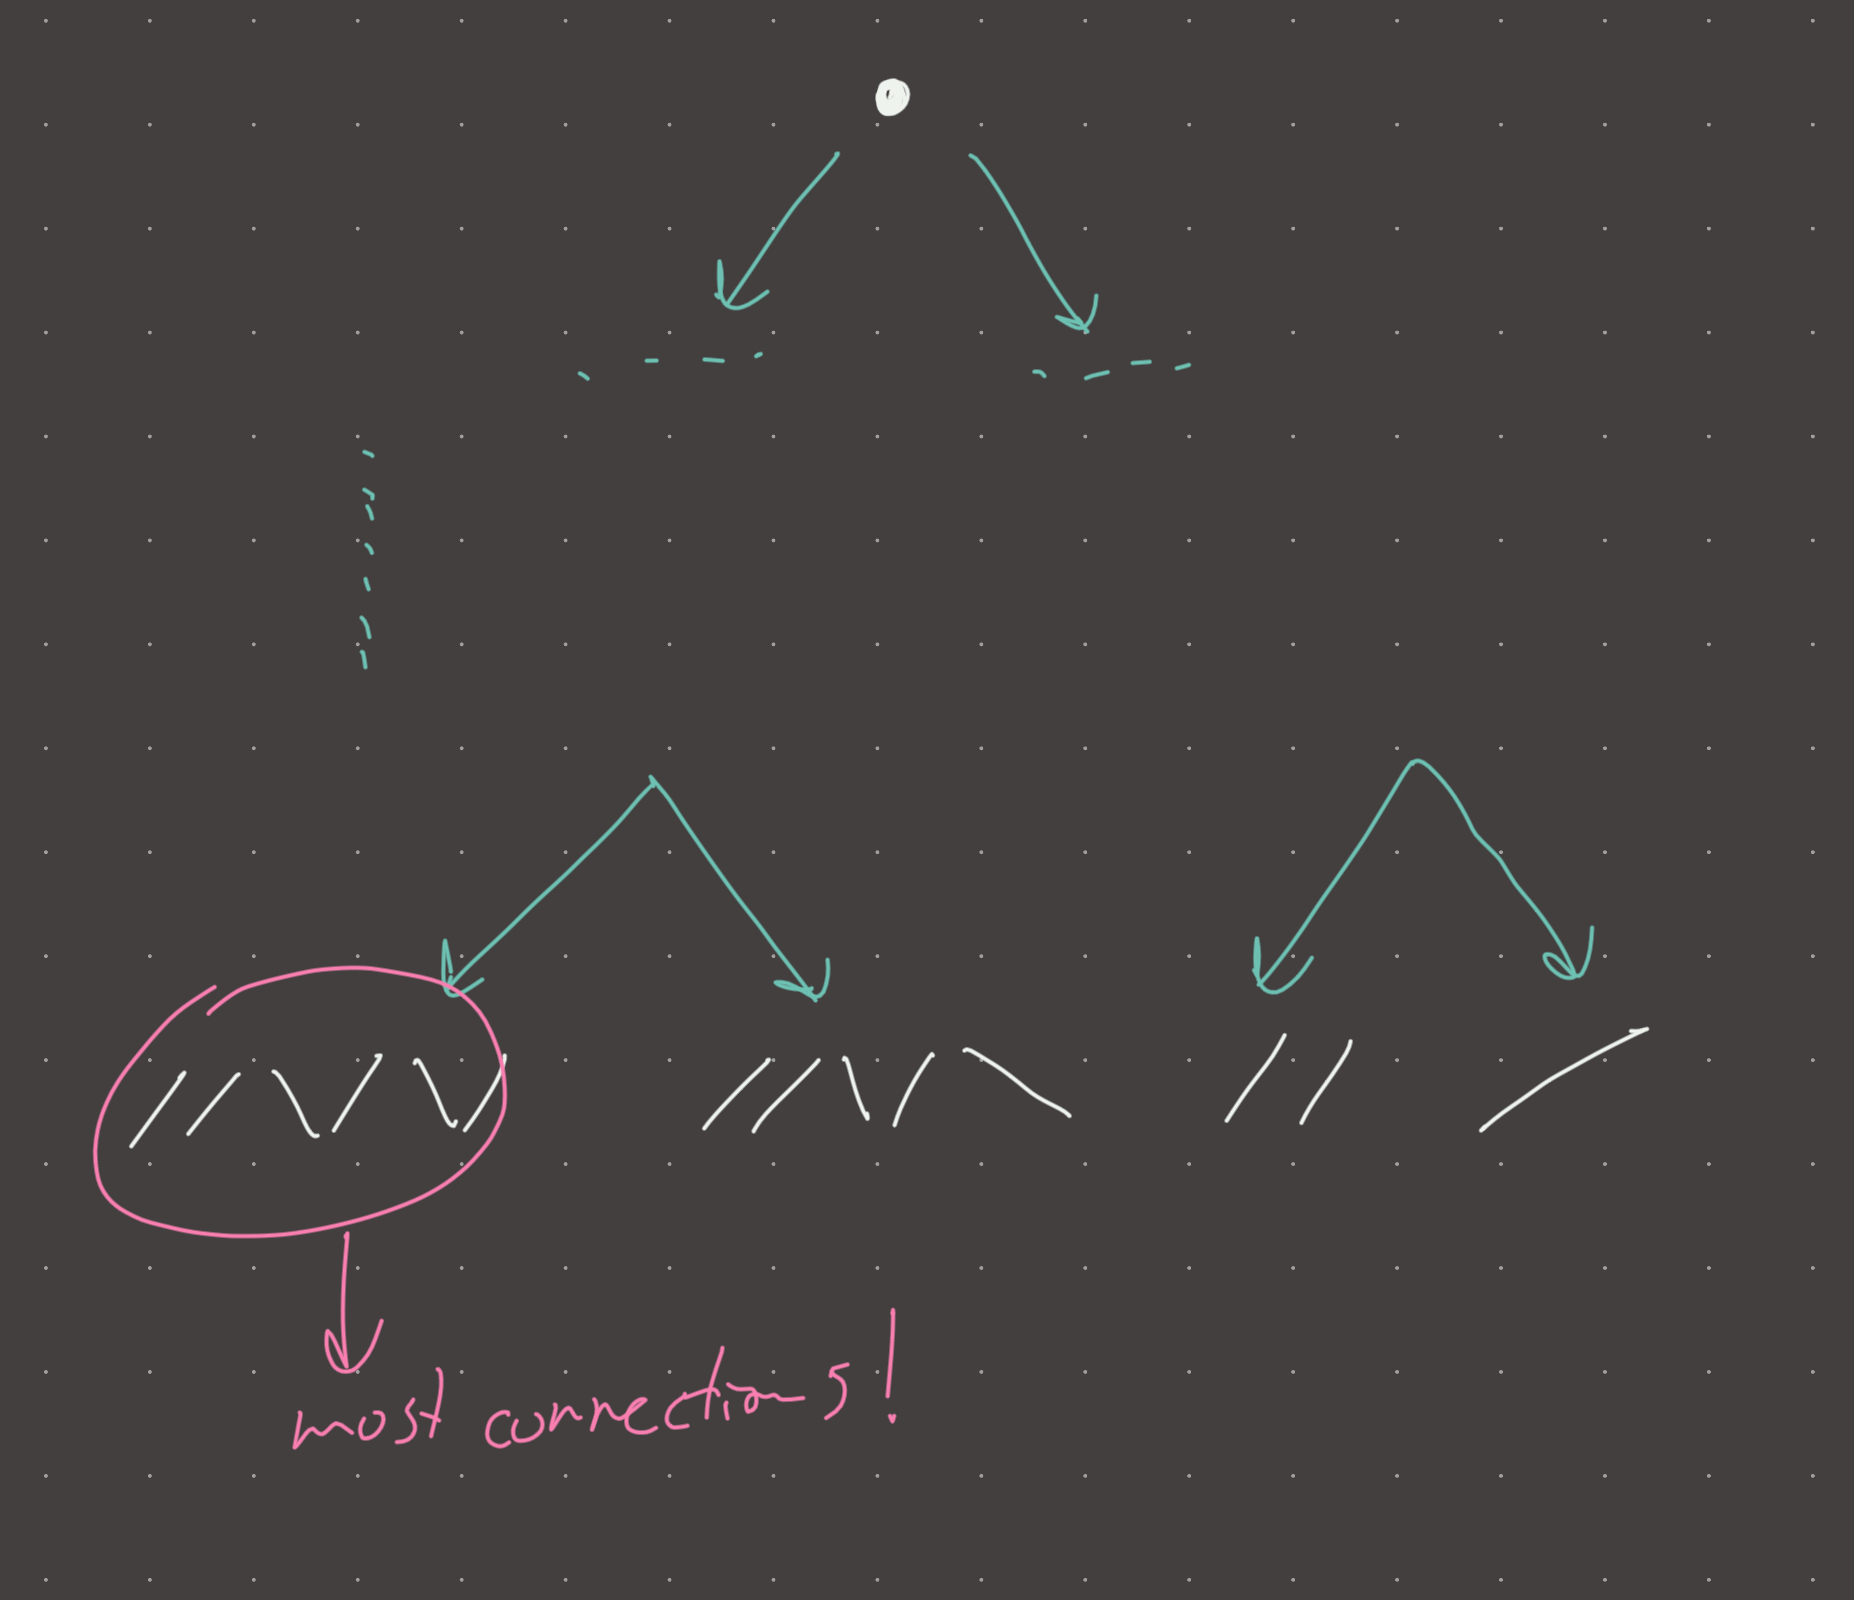 most connections!